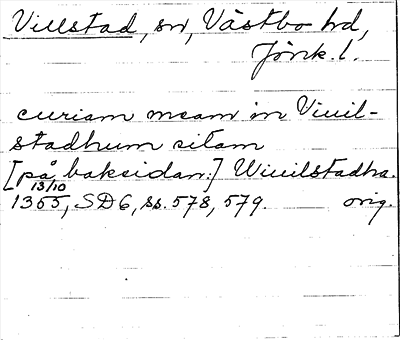 Villstad, sn, Västbo hd,
Jönk. l.
curiam meam in Viuil-
stadhum sitam
[på baksidan:] Wiuilstadha.
13/10
1355, SD6, ss. 578, 579. orig.